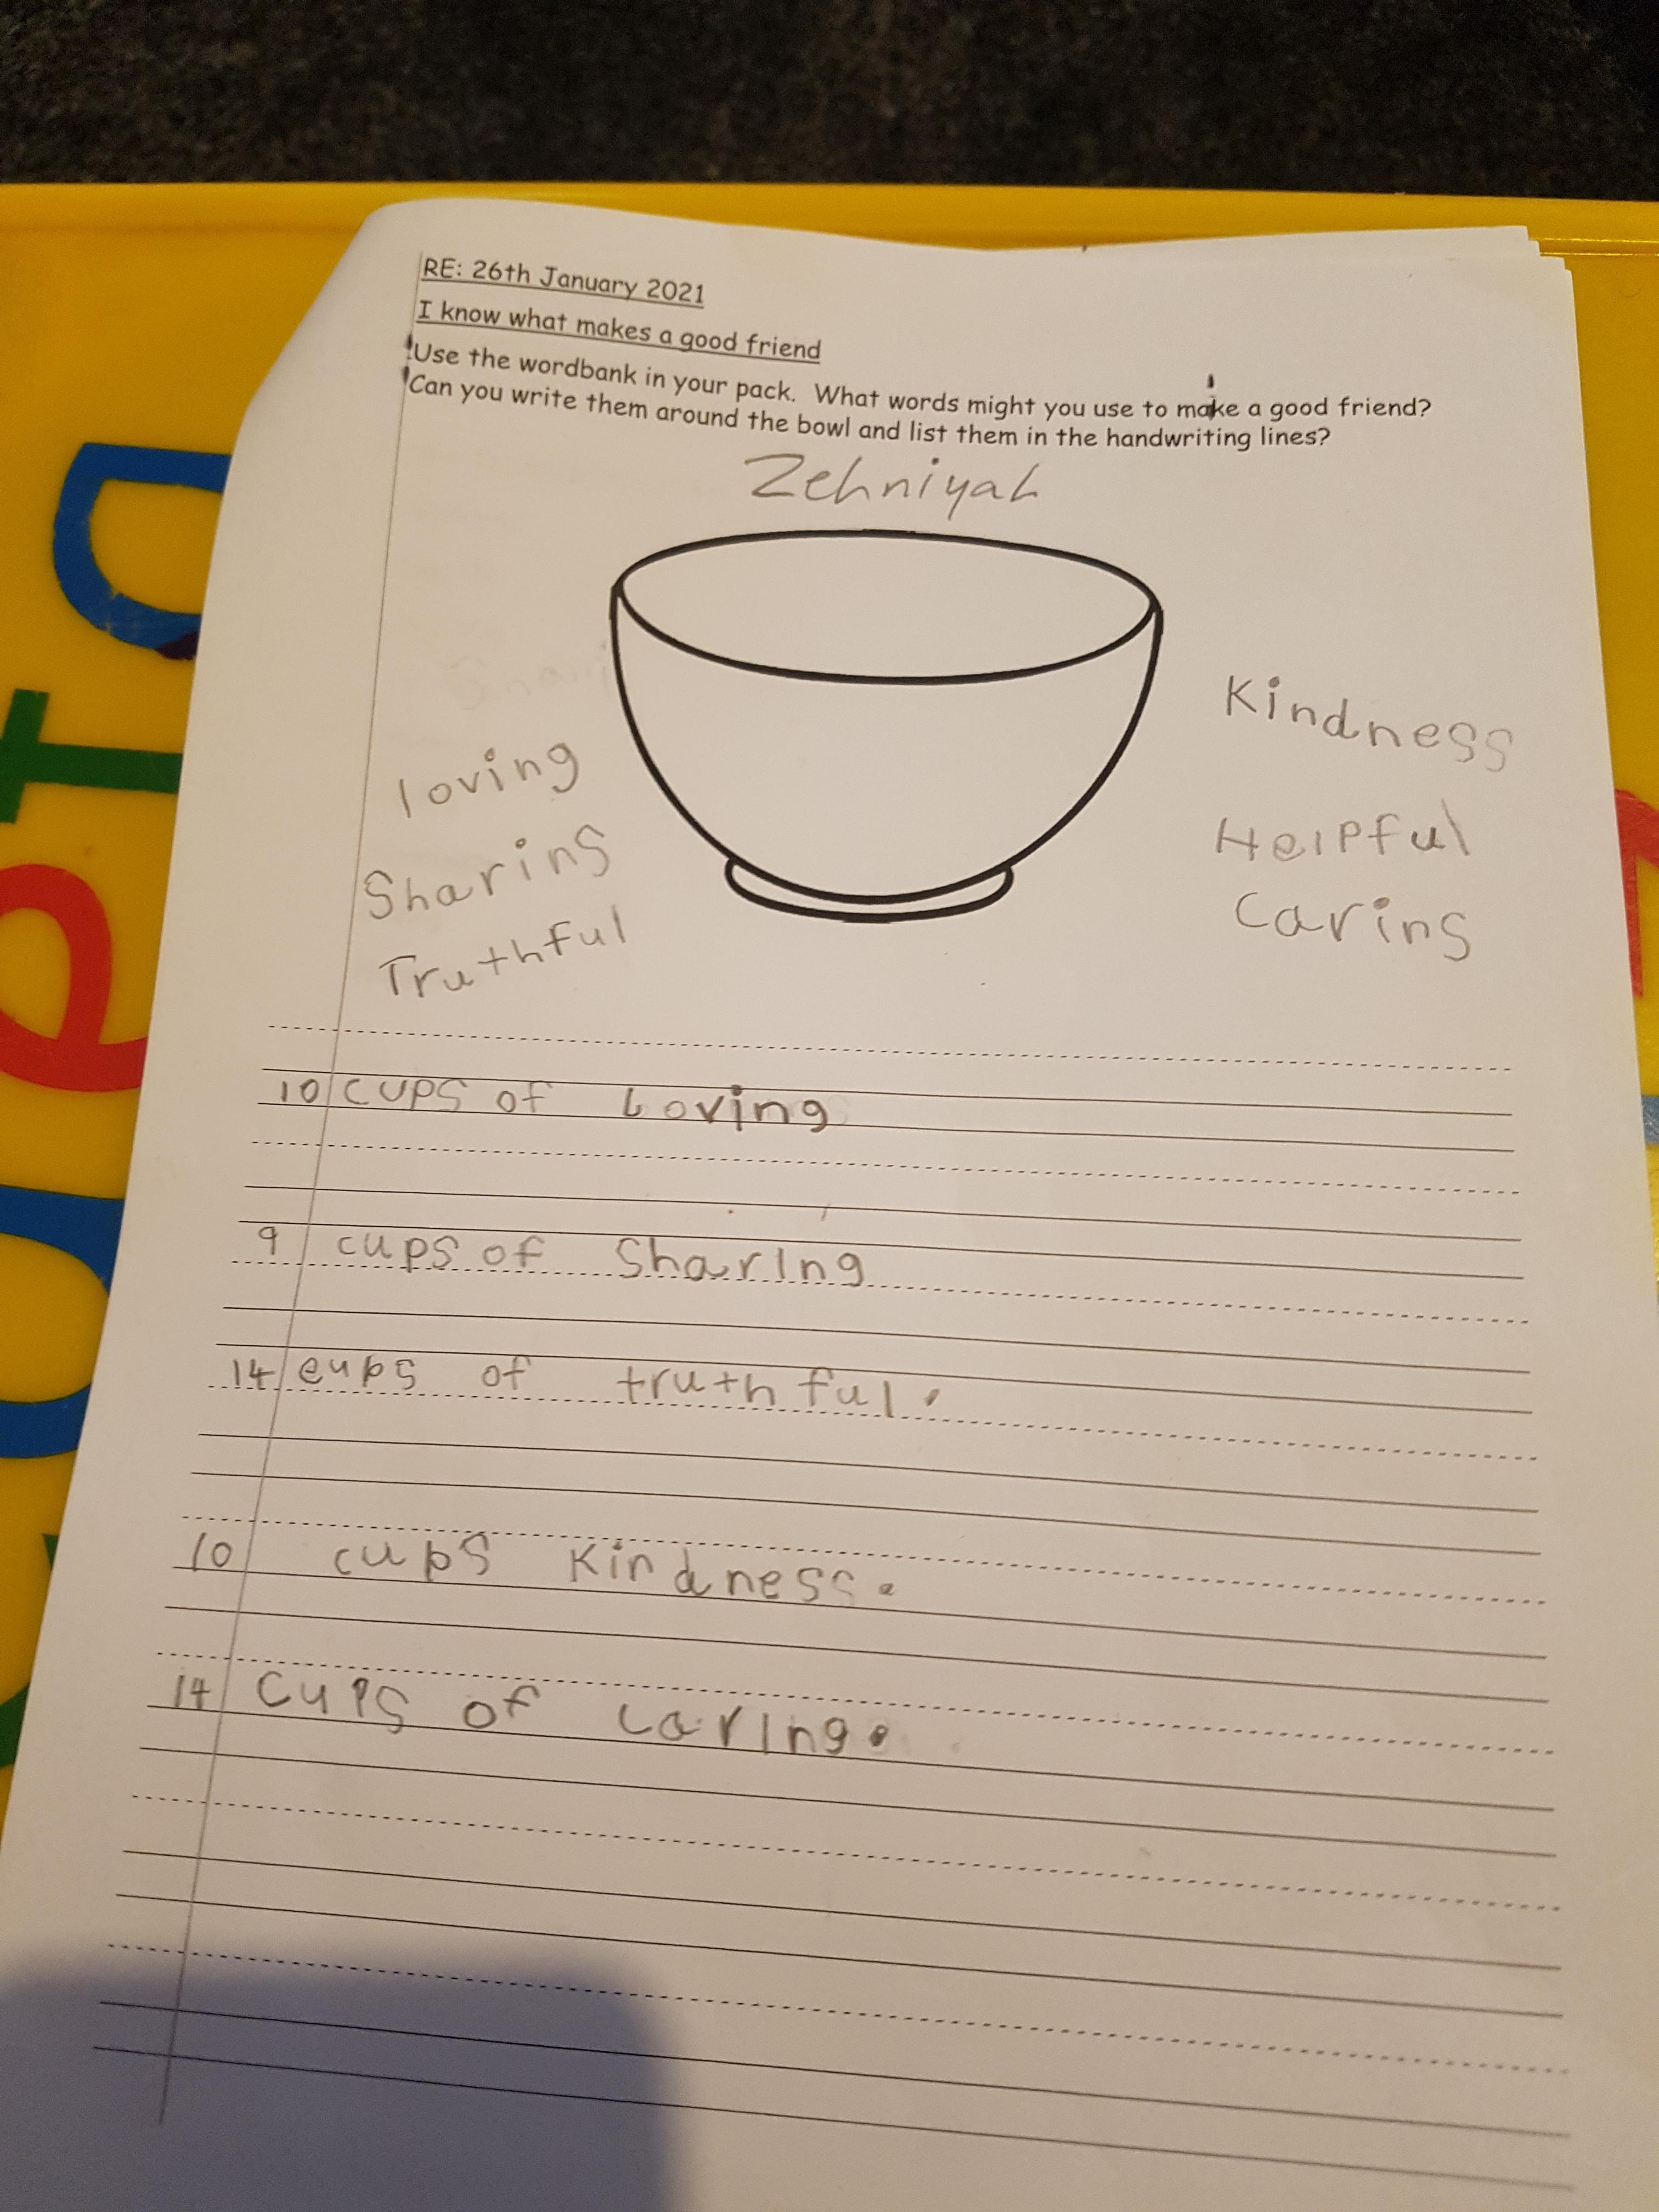 RE: 26th January 2021
I know what makes a good friend
Use the wordbank in your pack. What words might you use to make a good friend?
Can you write them around the bowl and list them in the handwriting lines?
Zehniyah
loving
Sharing
Truthful
Kindness
Helpful
Caring
10 cups of Loving
9 cups of Sharing
14 cups of truthful.
10 cups Kindness.
14 cups of caring.